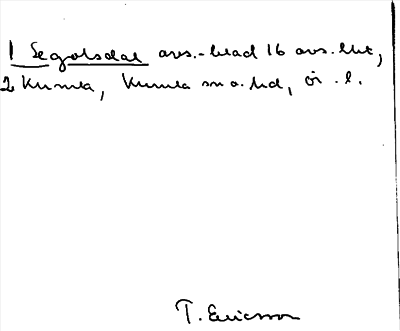 1 Segolsdal avs.-blad 16 avs. Eke,
2 Kumla, Kumla sn o. hd, ör. l.
T. Ericsson